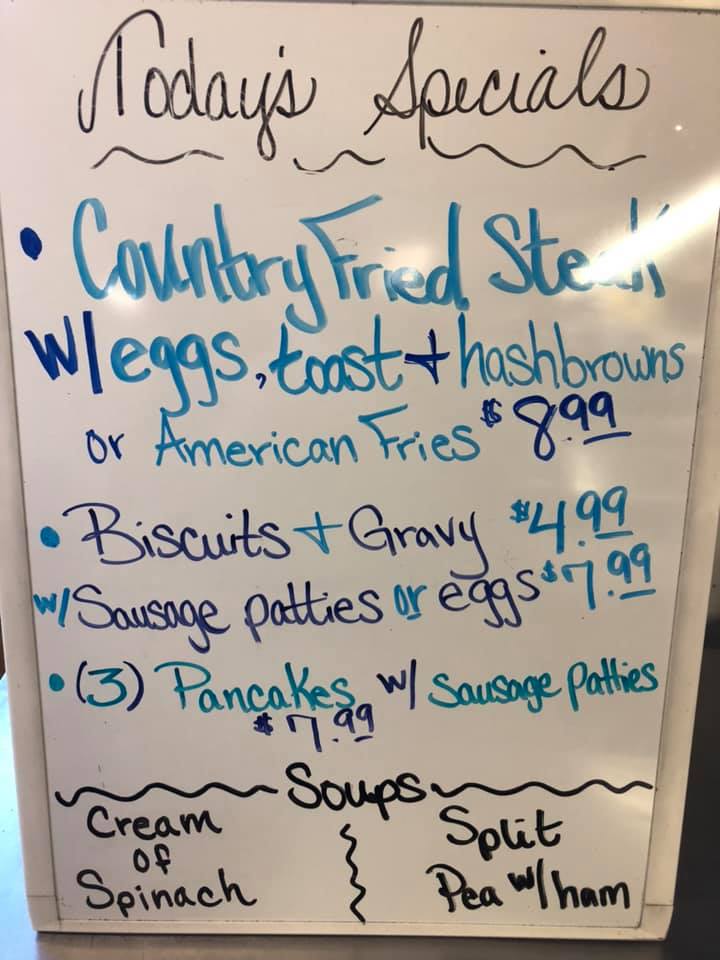 Today's Specials
• Country Fried Steak
w/eggs, toast + hashbrowns
or American Fries $8.99
• Biscuits + Gravy $4.99
w/Sausage patties or eggs $7.99
• (3) Pancakes w/ Sausage Patties
$7.99
Soups
Cream
of
Spinach
Split
Pea w/ham